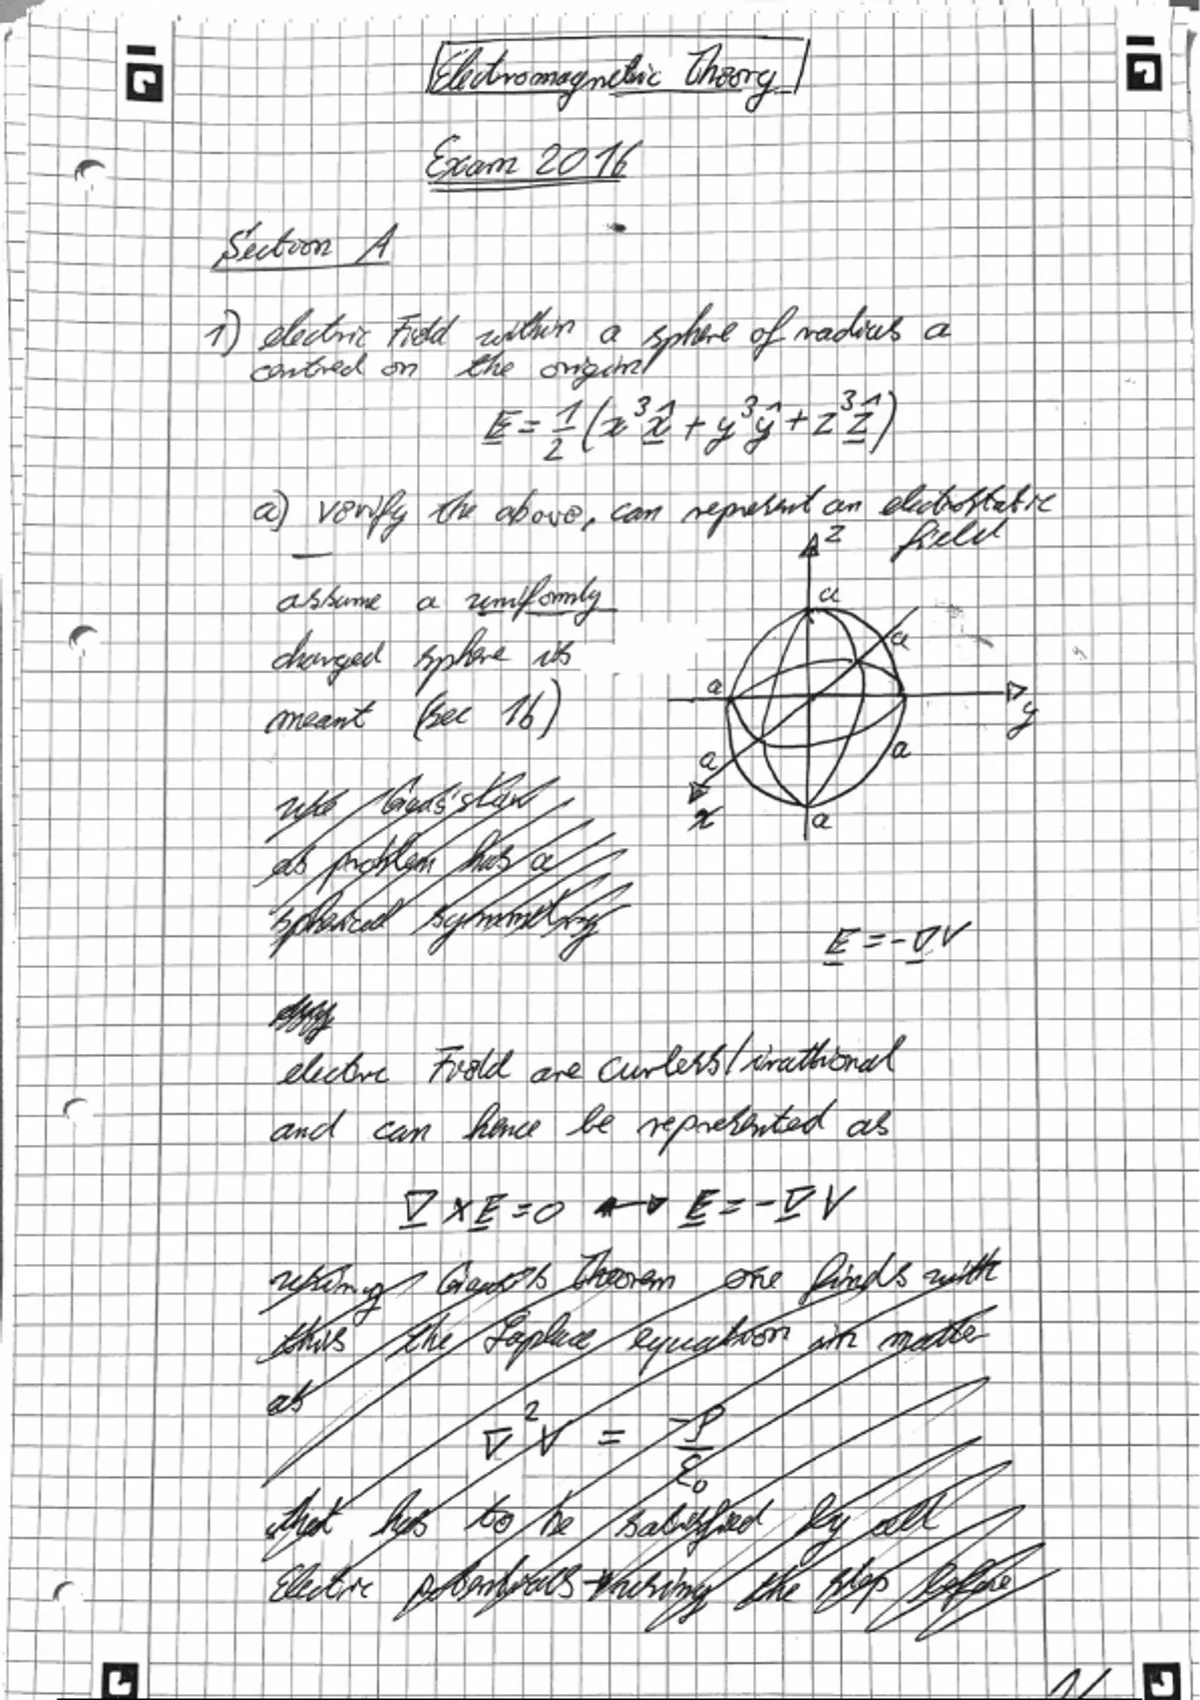 Electromagnetic Theory
Exam 2016
Section A
1) electric Field within a sphere of radius a
centred on the origin
E = 1/2 (x³x̂ + y³ŷ + z³ẑ)
a) verify the above, can represent an electrostatic
field
z
assume a uniformly
charged sphere its
meant (sec 16)
a
a
a
y
a
a
x
a
use Gauss's law
as problem has a
spherical symmetry
E = -∇V
electric Field are curless/irrational
and can hence be represented as
∇ × E = 0 ↔ E = -∇V
using Gauss's Theorem one finds with
this the Laplace equation in matter
as
∇²V = -ρ/ε₀
that has to be satisfied by all
Electric potentials the step before